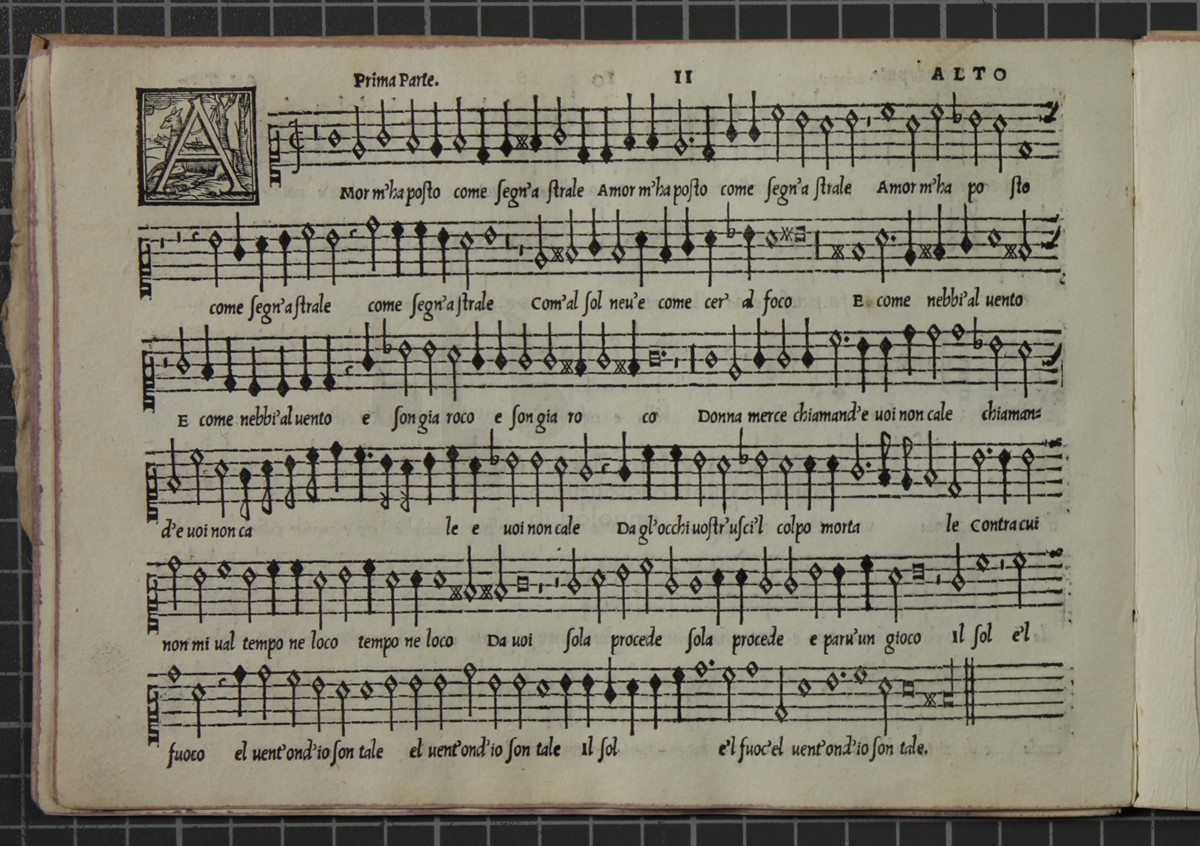 Prima Parte. II ALTO
AMor m'ha posto come segn'a strale Amor m'ha posto come segn'a strale Amor m'ha po sto
come segn'a strale come segn'a strale Com'al sol neu'e come cer' al foco E come nebbi'al uento
E come nebbi'al uento e son gia roco e son gia ro co Donna merce chiamand'e uoi non cale chiaman=
d'e uoi non ca le e uoi non cale Da gl'occhi uostr'usci'l colpo morta le Contra cui
non mi ual tempo ne loco tempo ne loco Da uoi sola procede sola procede e paru'un gioco Il sol e'l
fuoco el uent'ond'io son tale el uent'ond'io son tale Il sol e'l fuoc'el uent'ond'io son tale.